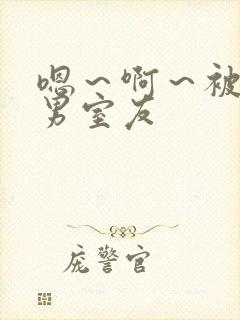 嗯～啊～被
男室友
庞警官